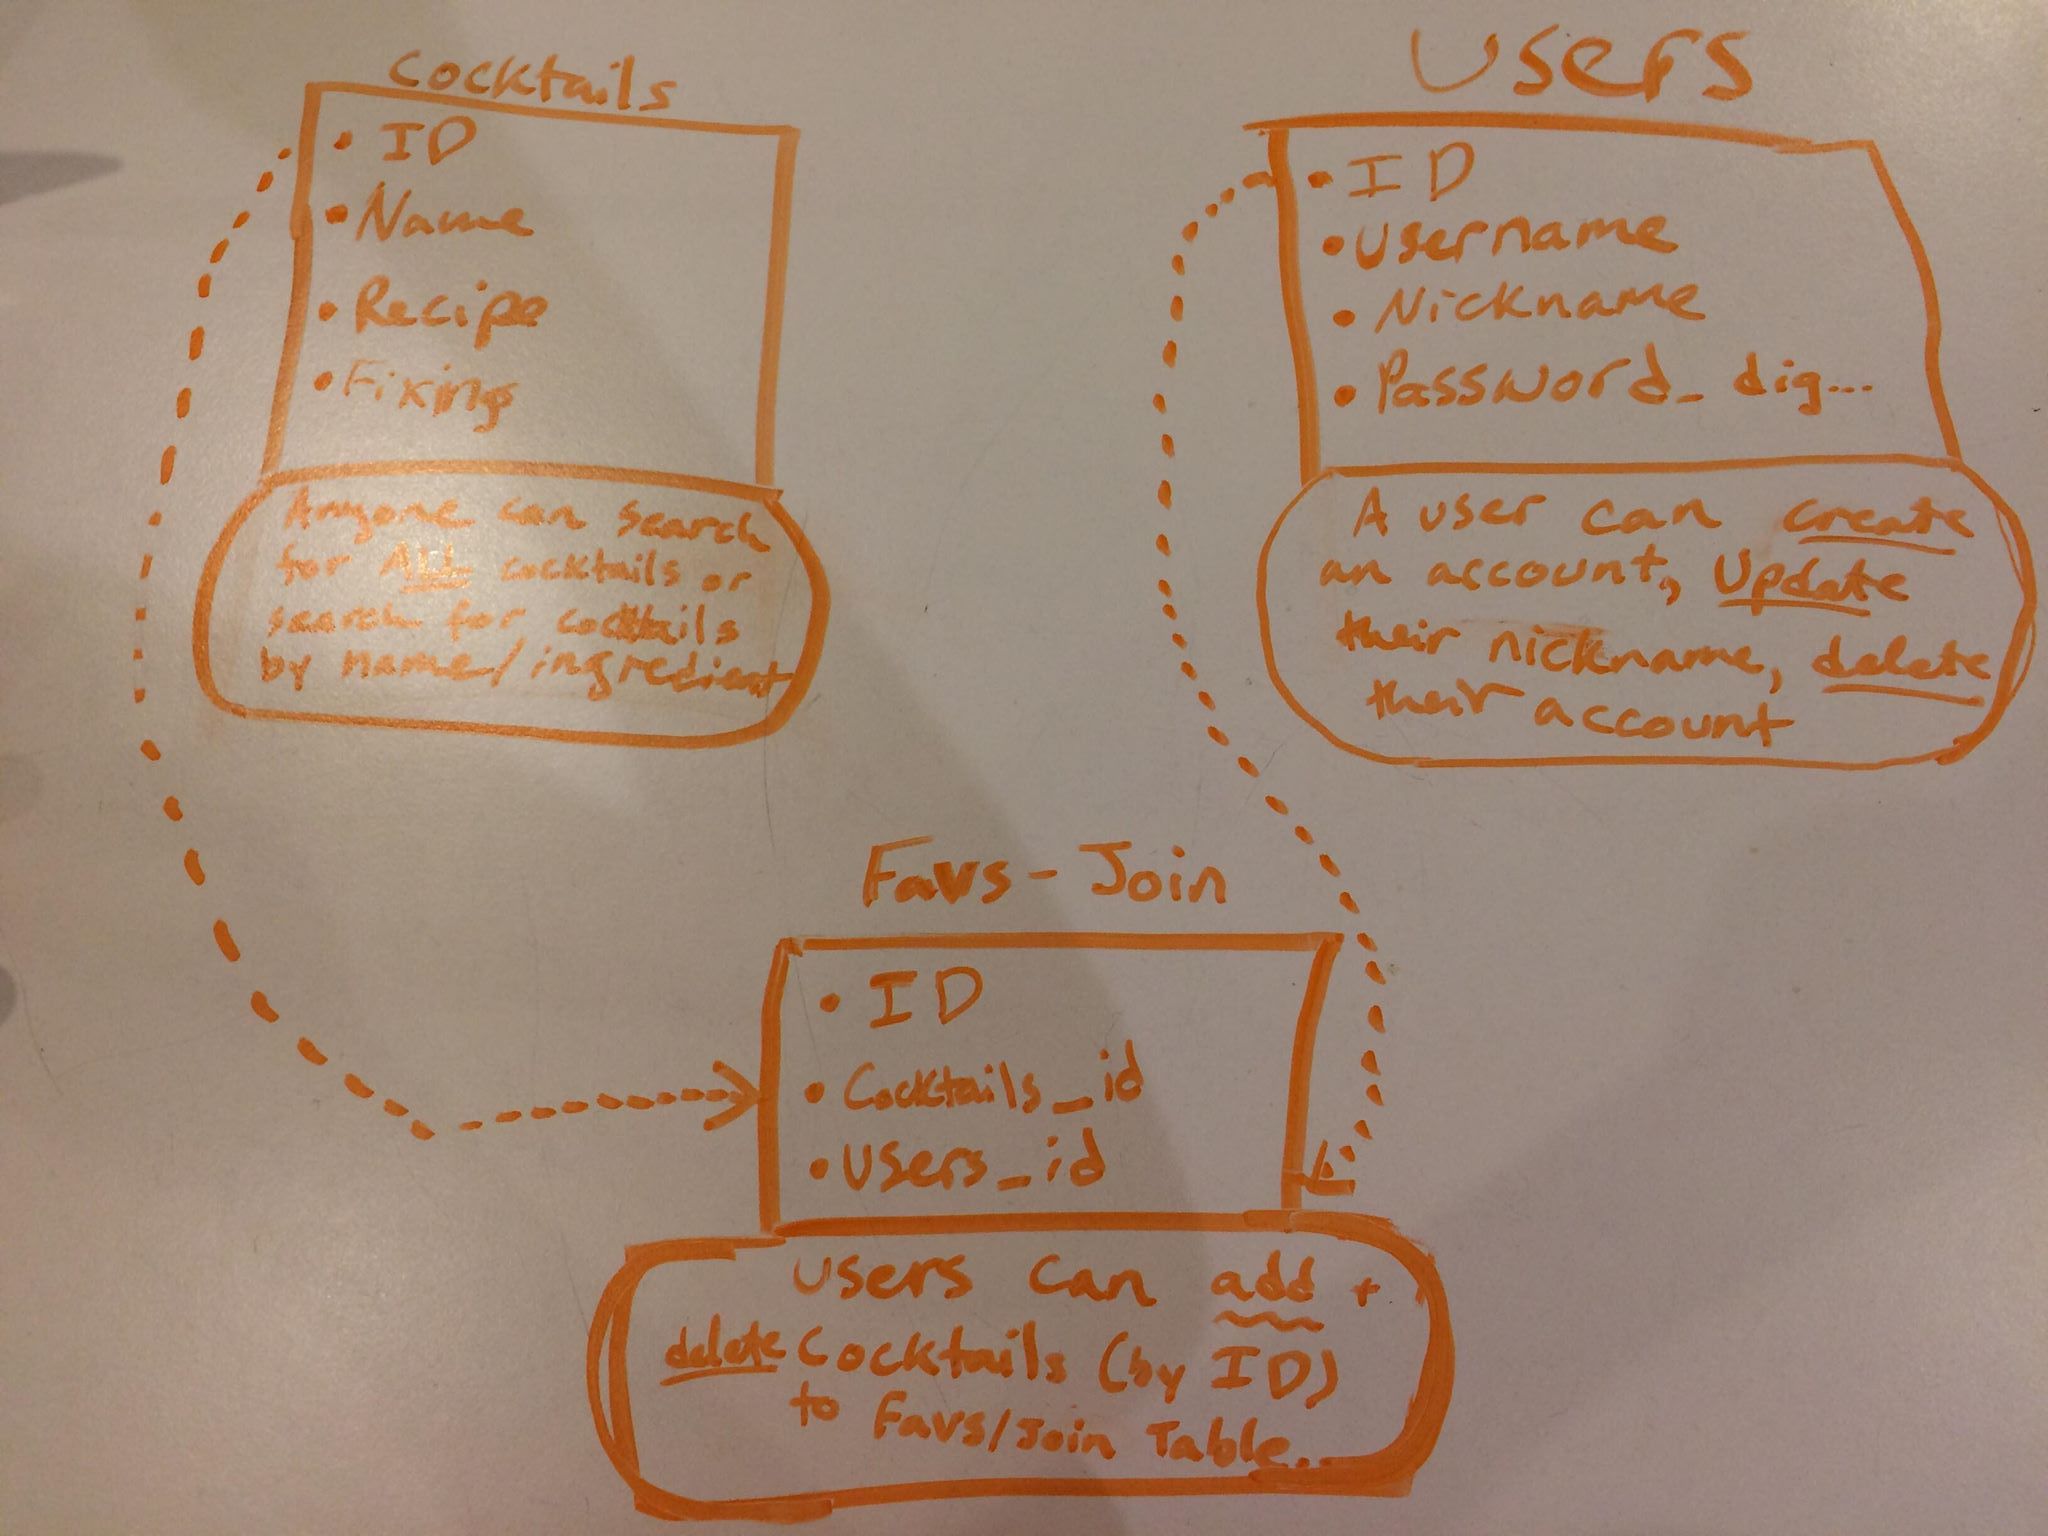 Cocktails
• ID
• Name
• Recipe
• Fixing
Anyone can search
for ALL cocktails or
search for cocktails
by name/ingredient
Users
• ID
• Username
• Nickname
• Password_dig...
A user can create
an account, Update
their nickname, delete
their account
Favs-Join
• ID
• Cocktails_id
• Users_id
Users can add +
delete Cocktails (by ID)
to Favs/Join Table...